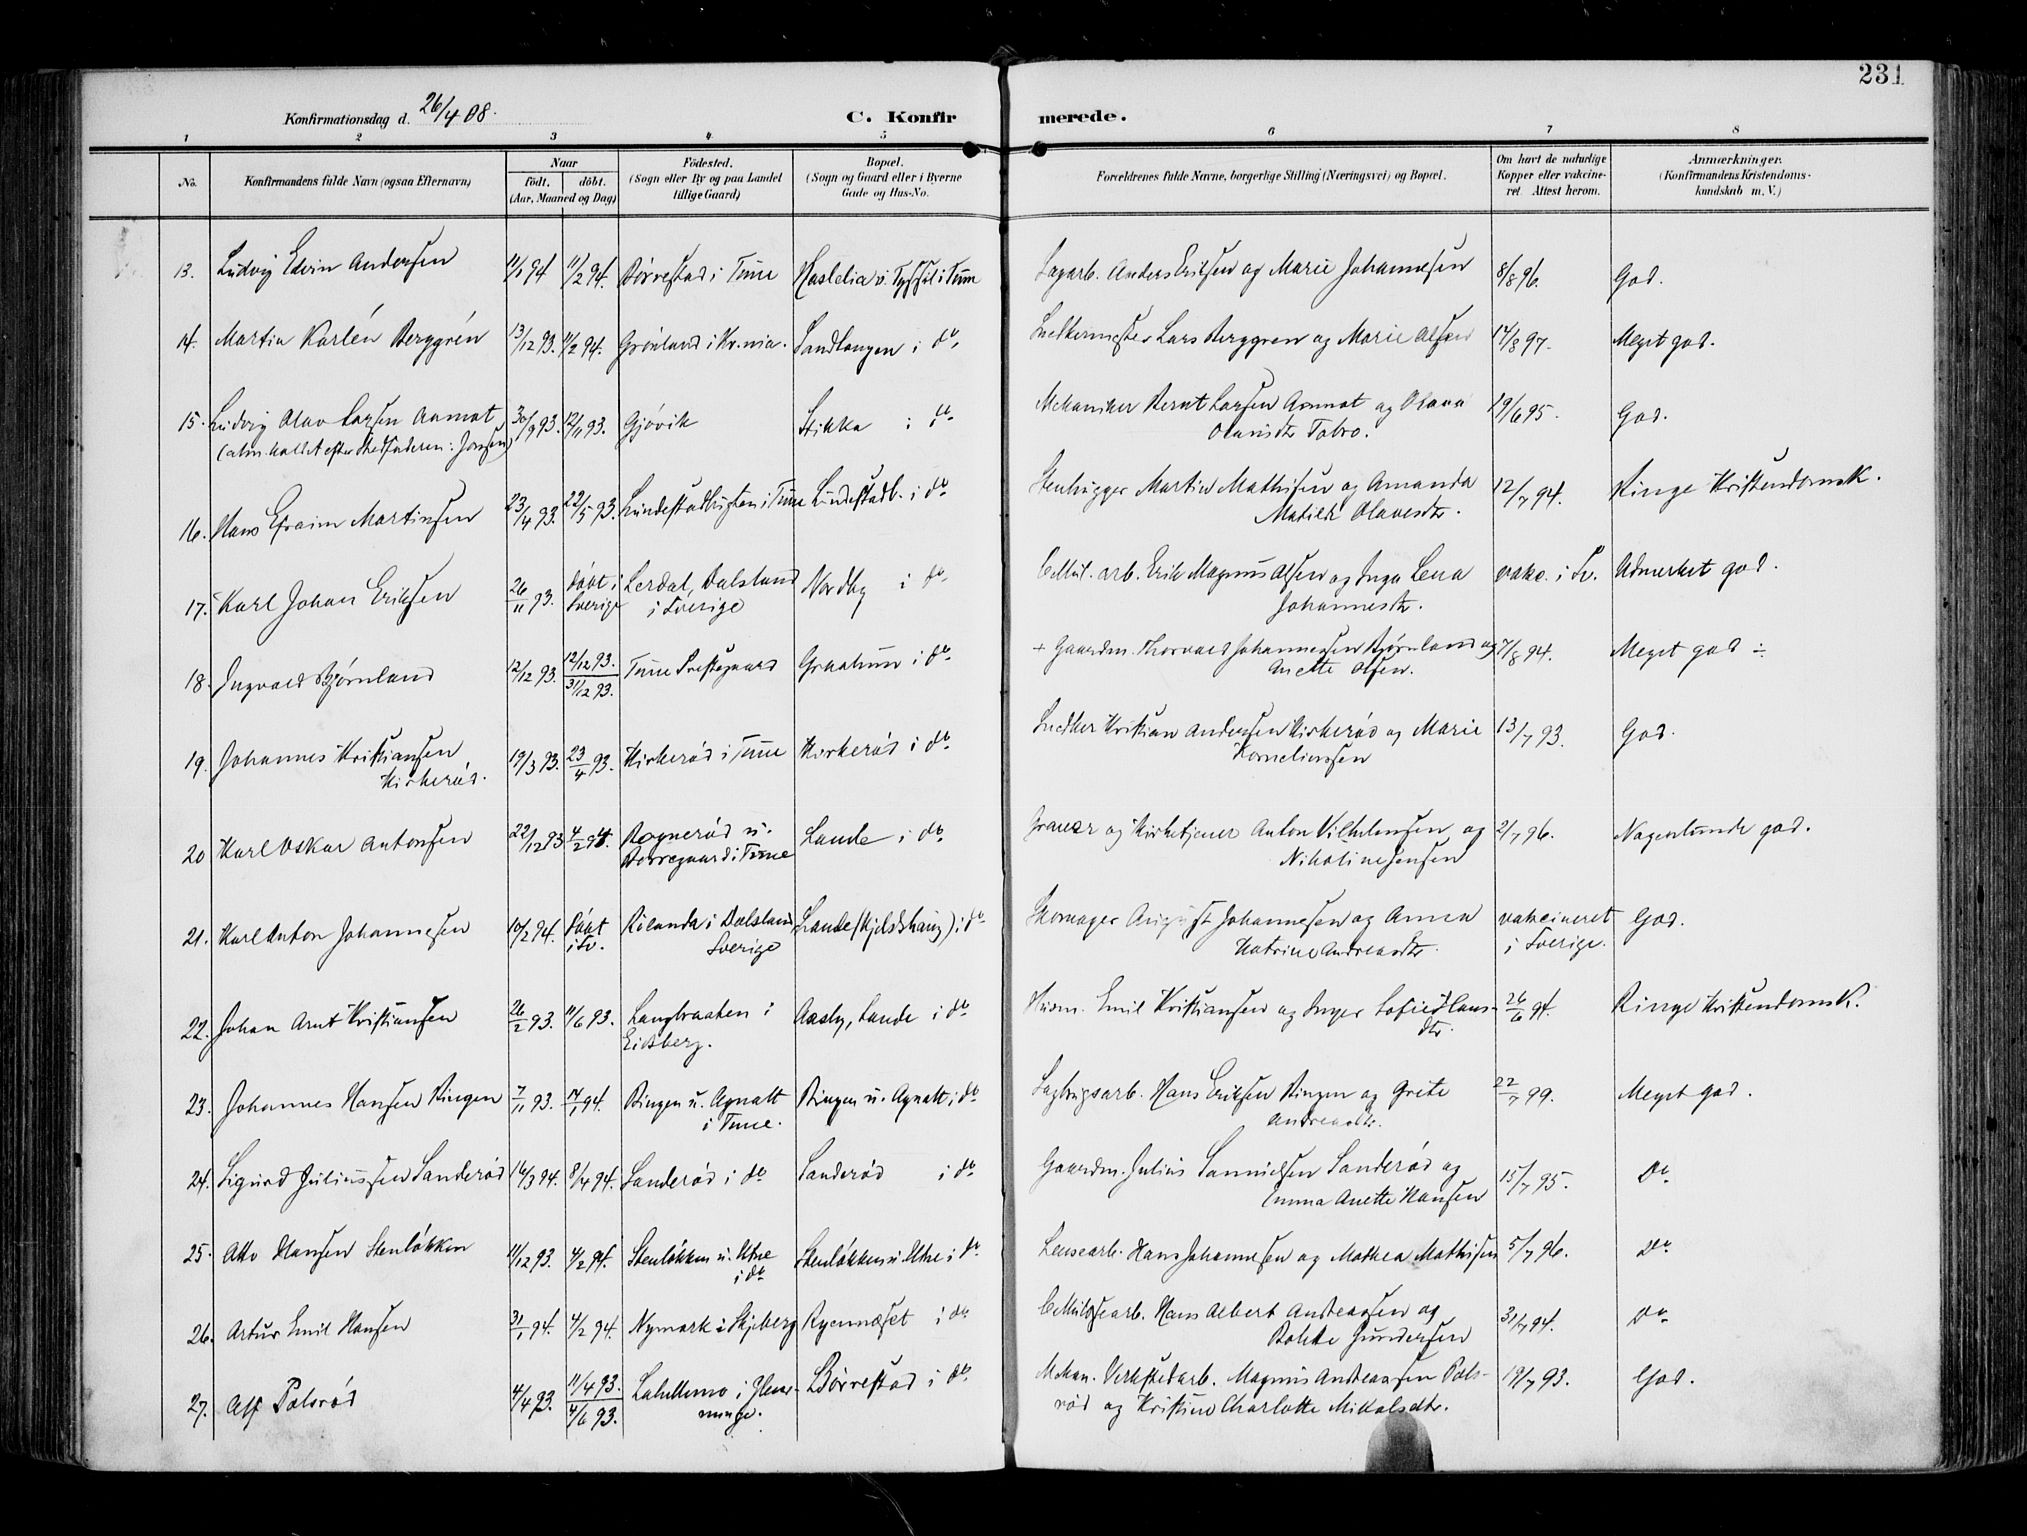 231
Konfirmationsdag d. 26/4 08.
C. Konfirmerede.
1 2 3 4 5 6 7 8
No. | Konfirmandens fulde Navn (ogsaa Efternavn) | Naar født, døbt. (Aar, Maaned og Dag) | Födested. (Sogn eller By og paa Landet tillige Gaard) | Bopæl. (Sogn og Gaard eller i Byerne Gade og Hus-No. | Forældrenes fulde Navne, borgerlige Stilling (Næringsvei) og Bopæl. | Om havt de naturlige Kopper eller vakcineret. Attest herom. | Anmærkninger. (Konfirmandens Kristendomskundskab m. V.)
13. Ludvig Edvin Andersen 11/1 94 11/2 94. Børrestad i Tune Haslelia v. i Tune Sagarb. Anders Eriksen og Marie Johannesen 8/8 96. God.
14. Martin Karlén Berggrén 13/12 93. 11/2 94. Grönland i Kr.nia. Sandtangen i do. Snekkermester Lars Berggren og Marie Olsen 14/8 97. Meget god.
15. Ludvig Olav Larsen Aamot 30/9 93. 12/11 93. Gjøvik Stikka i do. Mekaniker Bernt Larsen Aamot og Olava 19/6 95. God.
(alm. kaldet efter Stedfaderen: Jansen) Olausdtr Tobro.
16. Hans Efraim Martinsen 23/4 93. 22/5 93. Lundestadhugten i Tune Lundestadb. i do. Stenhugger Martin Mathisen og Amanda 12/7 94. Ringe Kristendomsk.
Matilde Olavesdtr.
17. Karl Johan Eriksen 26/11 93. Døbt i Sverige Lerdal, Dalsland i Sverige Nordby i do. Cellul. arb. Erik Magnus Olsen og Inga Lena vakc. i Sv. Udmerket god.
Johannesdtr.
18. Ingvald Bjørnland 12/12 93. 12/12 93. 31/12 93. Tune Prestegaard Graatun i do. + Gaardm. Thorvald Johannessen Bjørnland og 7/8 94. Meget god ÷
Anette Olsen.
19. Johannes Kristiansen 19/3 93. 23/4 93. Kirkerød i Tune Kirkerød i do. Snedker Kristian Andersen Kirkerød og Marie 13/7 93. God.
Kirkerød. Korneliussen
20 Karl Oskar Antonsen 22/12 93 4/2 94. Bognerød u. Borregaard i Tune Lande i do. Graver og Kirketjener Anton Vilhelmsen og 2/7 96. Nogenlunde god.
Nikoline Jensen
21. Karl Anton Johannesen 10/2 94. Døbt i Sv. Rölanda i Dalsland Sverige Lande (Kjeldshaug) i do. Skomager August Johannesen og Anna vakcineret i Sverige. God.
Katrine Andreasdtr.
22. Johan Arnt Kristiansen 26/2 93. 11/6 93. Langbraaten i Eidsberg. Aasly, Lande i do. Husm. Emil Kristiansen og Inger Sofie Hans- 26/6 94. Ringe Kristendomsk.
dtr.
23. Johannes Hansen Ringen 7/11 93. 14/1 94. Ringen u. Agnalt i Tune. Ringen u. Agnalt i do. Sagbrugsarb. Hans Eriksen Ringen og Grete 22/7 99. Meget god.
Andreasdtr.
24. Sigurd Juliussen Sanderød 16/3 94. 8/4 94. Sanderød i do. Sanderød i do. Gaardm. Julius Samuelsen Sanderød og 15/7 95. Do.
Emma Anette Hansen
25. Otto Hansen Stenløkken 11/12 93. 4/2 94. Stenløkken u. Utne i do. Stenløkken u. Utne i do. Lensearb. Hans Johannesen og Mathea Mathisen 5/7 96. Do.
26. Artur Emil Hansen 31/1 94. 4/2 94. Nymark i Skjeberg Ryennæset i do. Cellulosearb. Hans Albert Andreassen og 31/7 94. Do.
Bolette Gundersen
27. Alf Polsrød 4/4 93. 11/4 93. 4/6 93. Labellmo i Glemminge. Börrestad i do. Mekan. Verkstedarb. Magnus Andreassen Pols- 19/7 93. God.
rød og Kristine Charlotte Mikalsdtr.